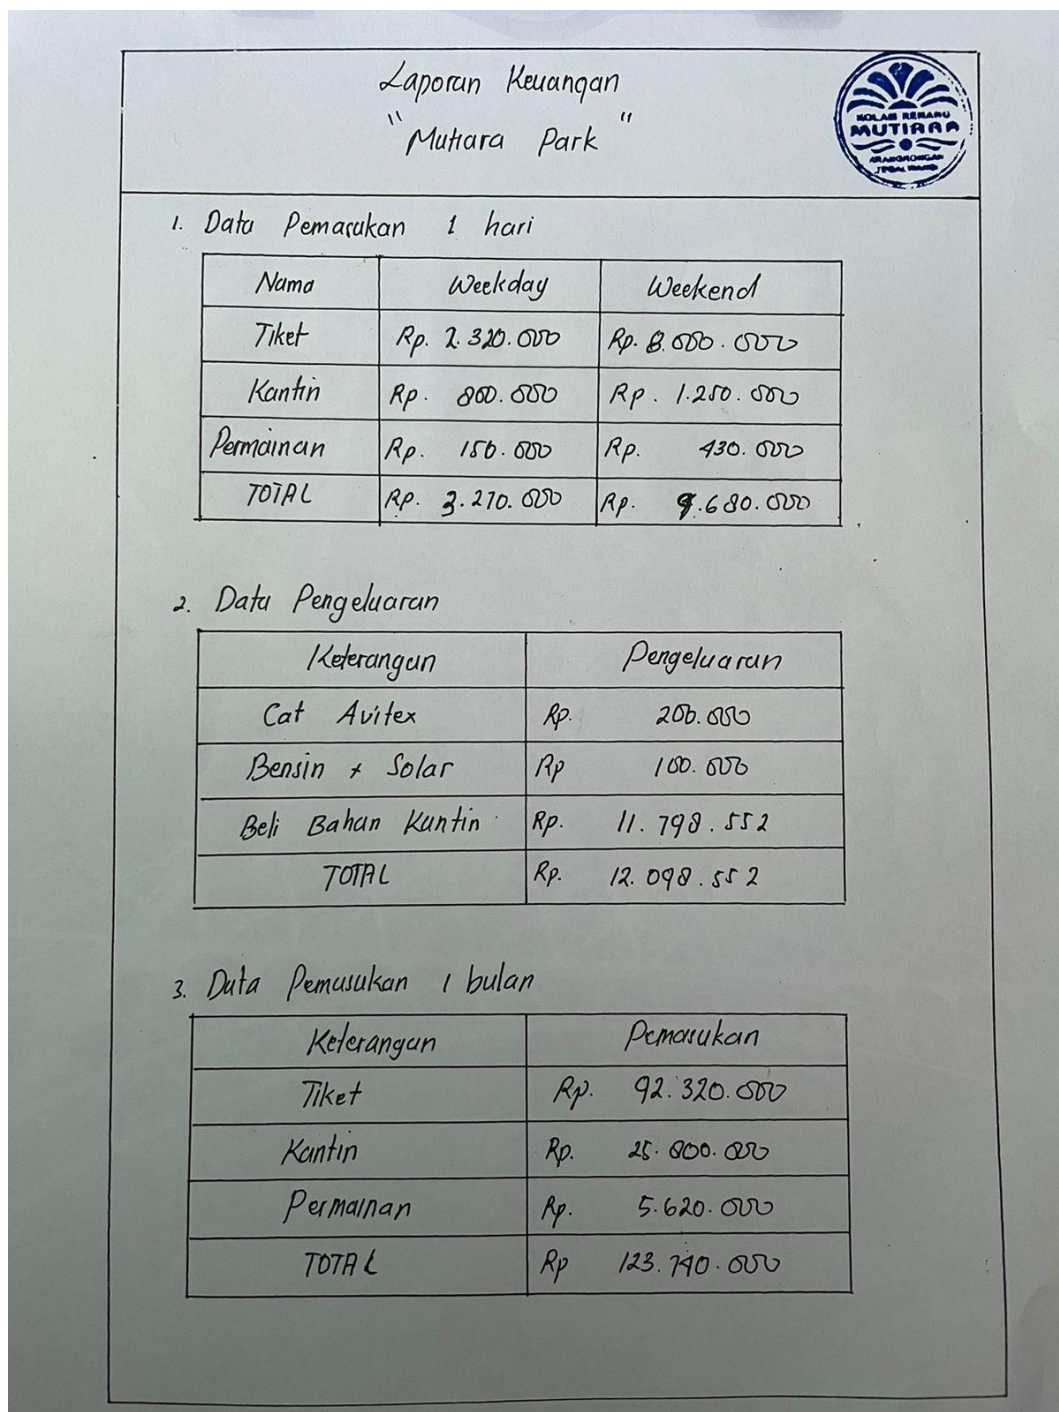 Laporan Keuangan
"Mutiara Park"
KOLAM RENANG
MUTIARA
1. Data Pemasukan 1 hari
Nama Weekday Weekend
Tiket Rp. 2.320.000 Rp. 8.000.000
Kantin Rp. 800.000 Rp. 1.250.000
Permainan Rp. 150.000 Rp. 430.000
TOTAL Rp. 3.270.000 Rp. 9.680.000
2. Data Pengeluaran
Keterangan Pengeluaran
Cat Avitex Rp. 200.000
Bensin + Solar Rp 100.000
Beli Bahan Kantin Rp. 11.798.552
TOTAL Rp. 12.098.552
3. Data Pemasukan 1 bulan
Keterangan Pemasukan
Tiket Rp. 92.320.000
Kantin Rp. 25.800.000
Permainan Rp. 5.620.000
TOTAL Rp 123.740.000